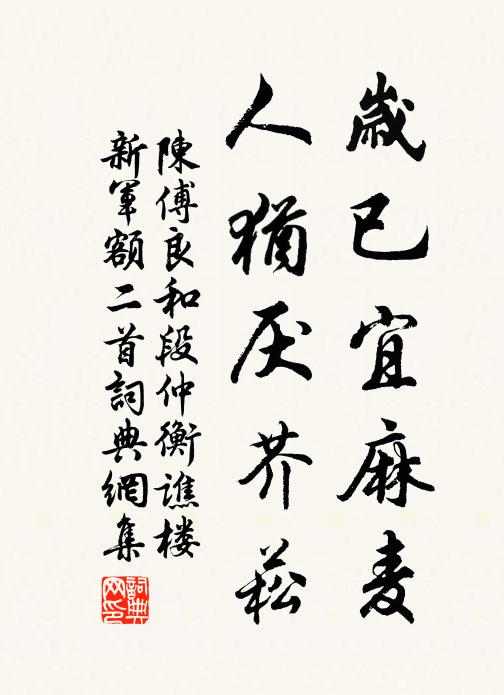 歲已宜麻麦
人猶厌芥菘
陳傅良和段仲衡譙楼
新軍額二首詞典網集
詞典網印